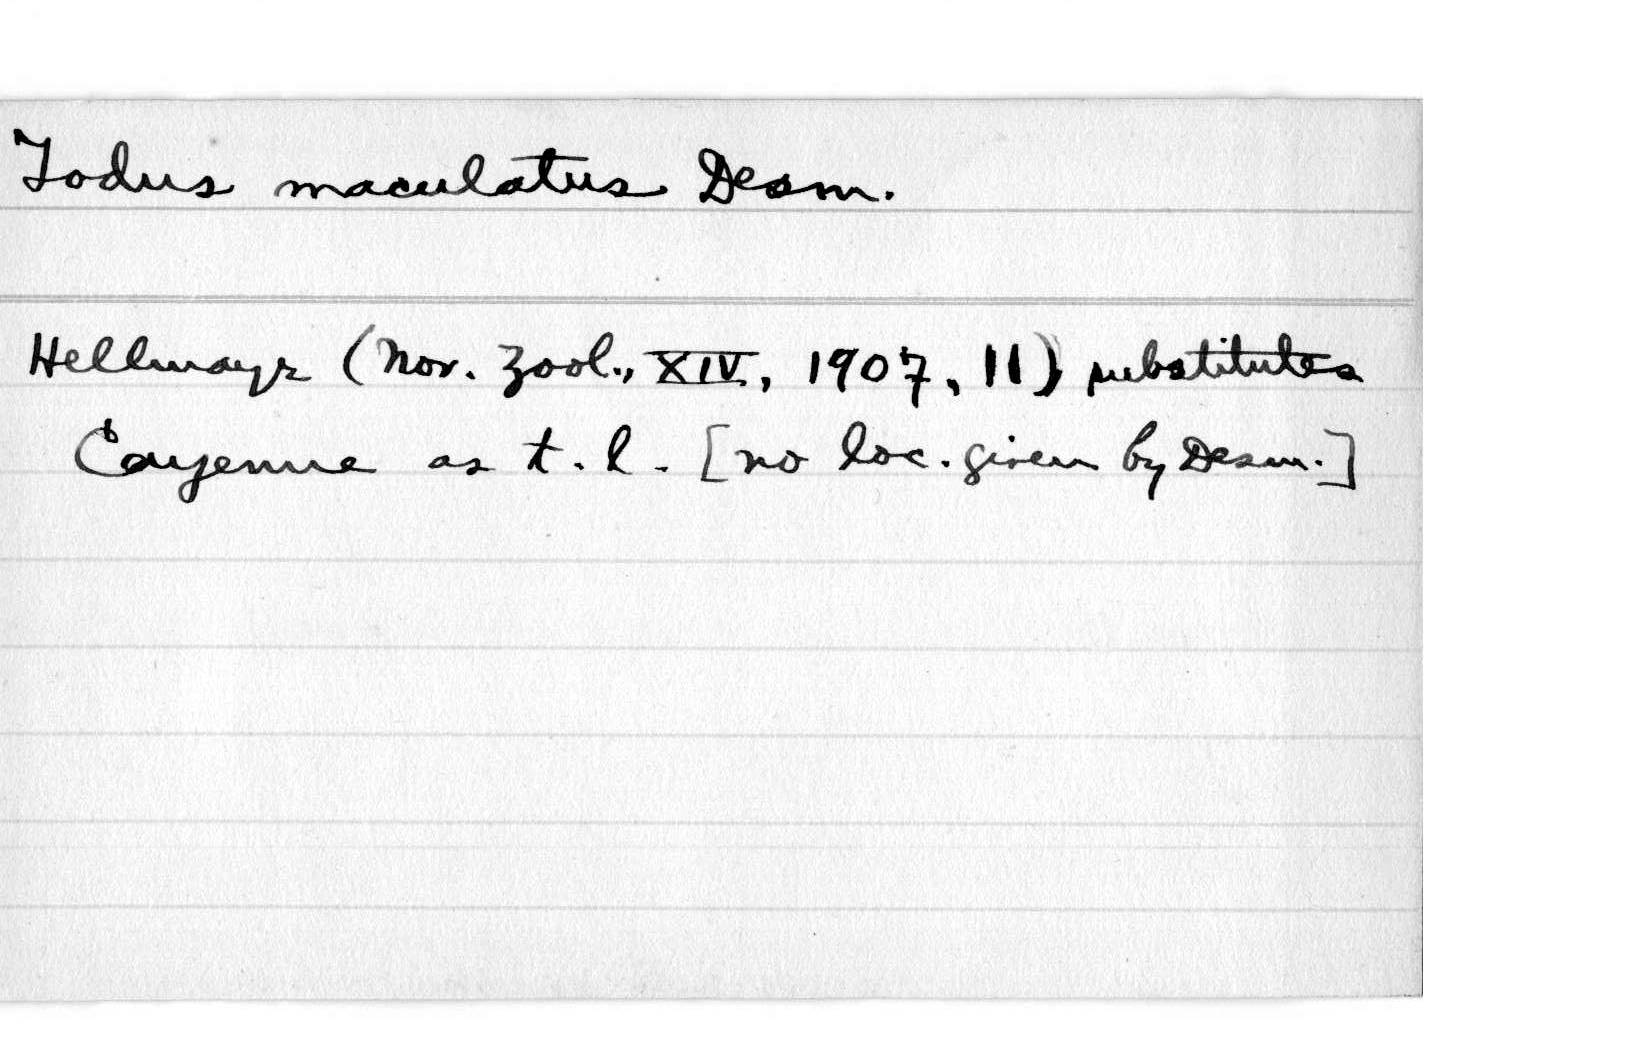 Todus maculatus Desm.
Hellmayr (Nov. Zool., XIV, 1907, 11) substitutes
Cayenne as t.l. [no loc. given by Desm.]